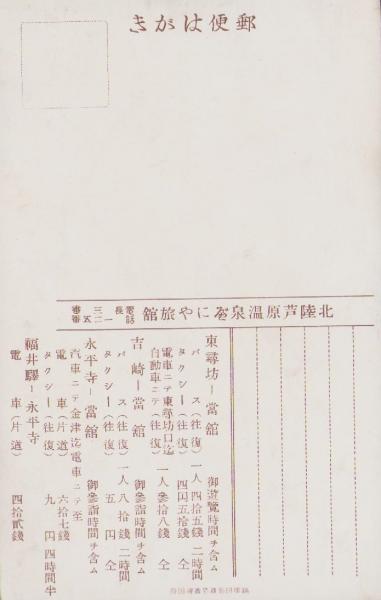 郵便はがき
北陸芦原温泉 べにや旅館 電話長
東尋坊ー當舘 御遊覽時間ヲ含ム
バス(往復) 一人 四拾五錢 二時間
タクシー(往復) 四円五拾錢 仝
電車ニテ東尋坊口迄
自動車ニテ(往復) 一人 參拾八錢 仝
吉崎ー當舘 御參詣時間ヲ含ム
バス(往復) 一人 八拾錢 二時間
タクシー(往復) 五円 仝
永平寺ー當舘 御參詣時間ヲ含ム
汽車ニテ金津迄電車ニテ至
電車(片道) 六拾七錢
タクシー(往復) 九円 四時間半
福井驛ー永平寺
電車(片道) 四拾貳錢